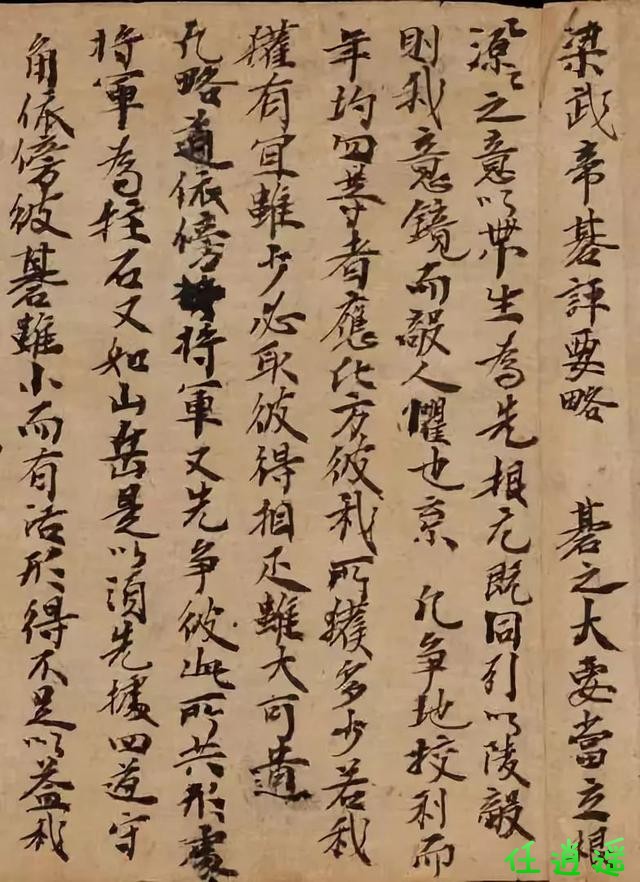 梁武帝碁評要略 碁之大要當立根
源之意以帶生為先根元既同引以陵敵
則我意鏡而敵人懼也 凡争地挍利而
年均者應此方彼我所獲多少若我
獲有宜雖少必取彼得相匹雖大可遺
凡略道依傍將軍又先争彼此所共形處
將軍為柱石又如山岳是以須先據四道守
角依傍彼碁雖小而有活形得不足以益我
任逍遥